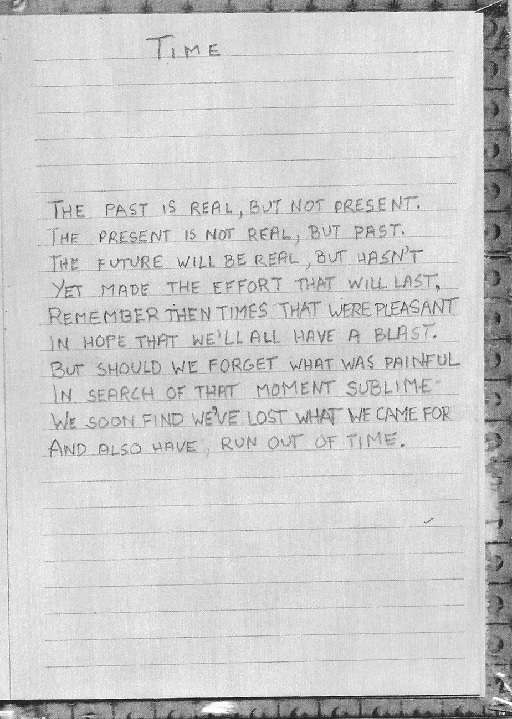 TIME
THE PAST IS REAL, BUT NOT PRESENT.
THE PRESENT IS NOT REAL, BUT PAST.
THE FUTURE WILL BE REAL, BUT HASN'T
YET MADE THE EFFORT THAT WILL LAST,
REMEMBER THEN TIMES THAT WERE PLEASANT
IN HOPE THAT WE'LL ALL HAVE A BLAST.
BUT SHOULD WE FORGET WHAT WAS PAINFUL
IN SEARCH OF THAT MOMENT SUBLIME
WE SOON FIND WE'VE LOST WHAT WE CAME FOR
AND ALSO HAVE, RUN OUT OF TIME.